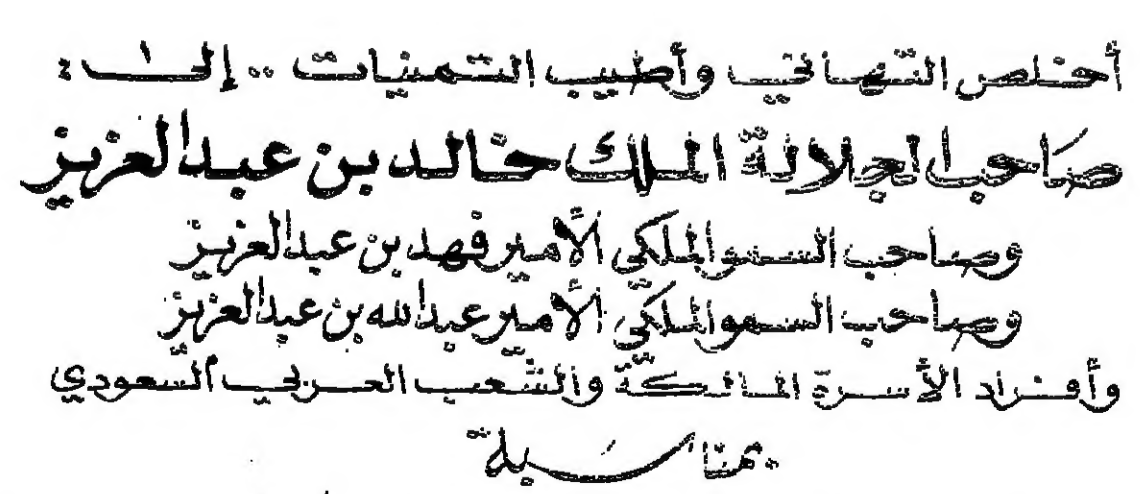 أخلص التهاني وأطيب التمنيات .. إلى :
صاحب الجلالة الملك خالد بن عبدالعزيز
وصاحب السمو الملكي الأمير فهد بن عبدالعزيز
وصاحب السمو الملكي الأمير عبدالله بن عبدالعزيز
وأفراد الأسرة المالكة والشعب العربي السعودي
بمناسبة